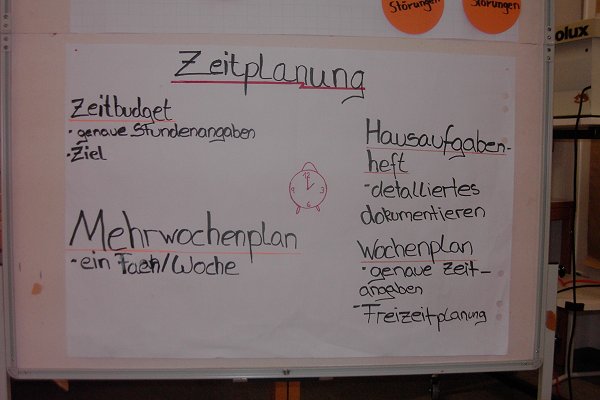 Störungen
Störungen
olux
Zeitplanung
Zeitbudget
· genaue Stundenangaben
· Ziel
Mehrwochenplan
· ein Fach/Woche
Hausaufgaben-
heft
- detalliertes
dokumentieren
Wochenplan
· genaue Zeit-
angaben
- Freizeitplanung